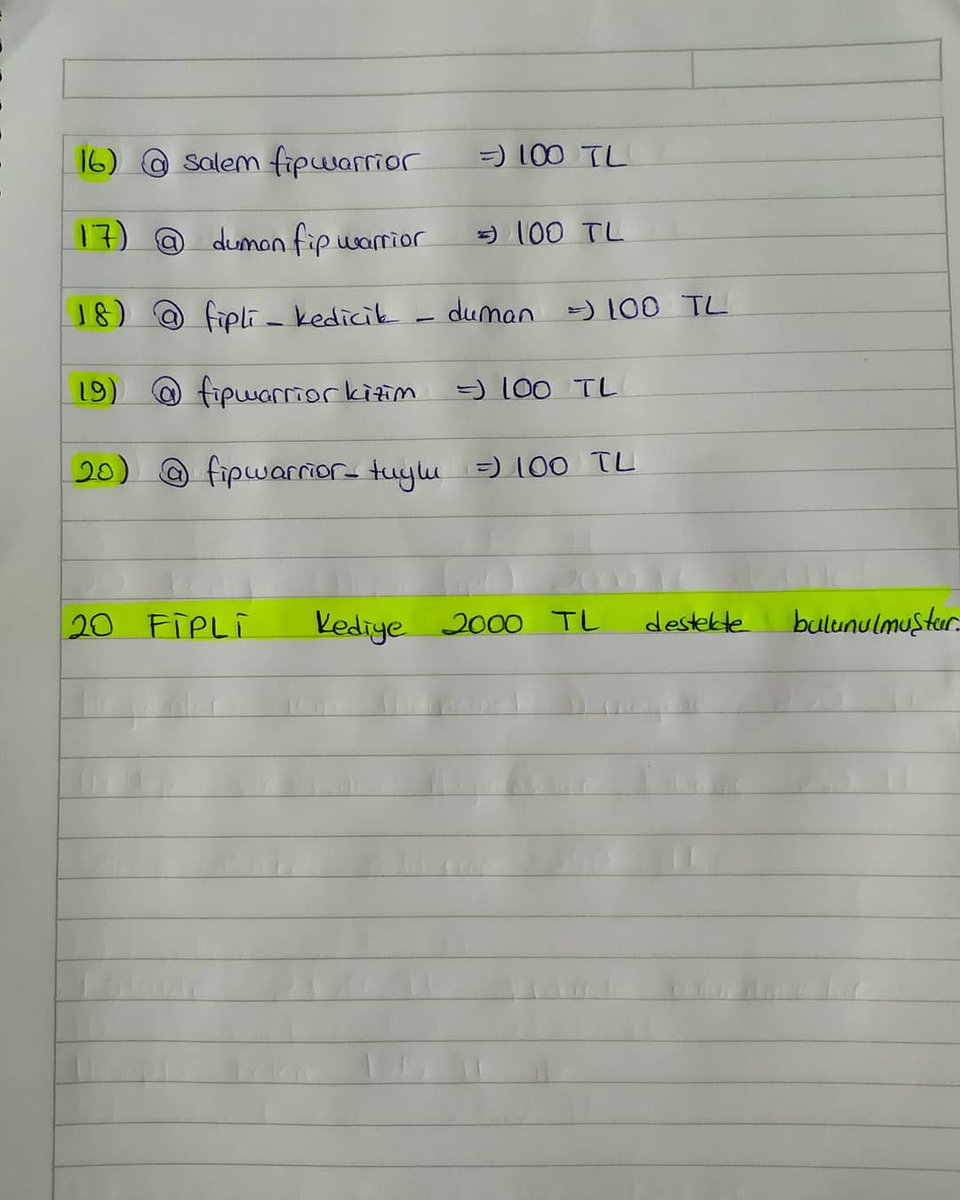 16) @ salem fipwarrior => 100 TL
17) @ duman fip warrior => 100 TL
18) @ fipli - kedicik - duman => 100 TL
19) @ fipwarrior kizim => 100 TL
20) @ fipwarrior - tuylu => 100 TL
20 FİPLİ Kediye 2000 TL destekte bulunulmuştur.